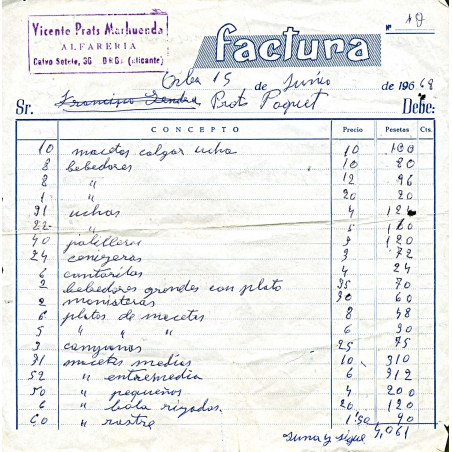 Vicente Prats Marhuenda
ALFARERIA
Calvo Sotelo, 36 ORBA (Alicante)
factura
Nº 10
Orba 15 de Junio de 1968
Sr. Francisco Sendra Proto Poquet Debe:
CONCEPTO Precio Pesetas Cts.
10 macetas colgar ucha 10 100
8 bebedores 10 80
8 " 12 96
1 " 20 20
31 uchas 4 124
22 " 5 110
40 palilleros 3 120
24 cenizeras 3 72
6 cantaritas 4 24
2 bebedores grandes con plato 35 70
2 monisteras 30 60
6 platos de macetas 8 48
6 " " " 5 30
3 campanos 25 75
31 macetas medias 10 310
52 " entremedia 6 312
50 " pequeños 4 200
6 " bola rizadas 20 120
60 " rastre 1'50 90
Suma y sigue 2,061